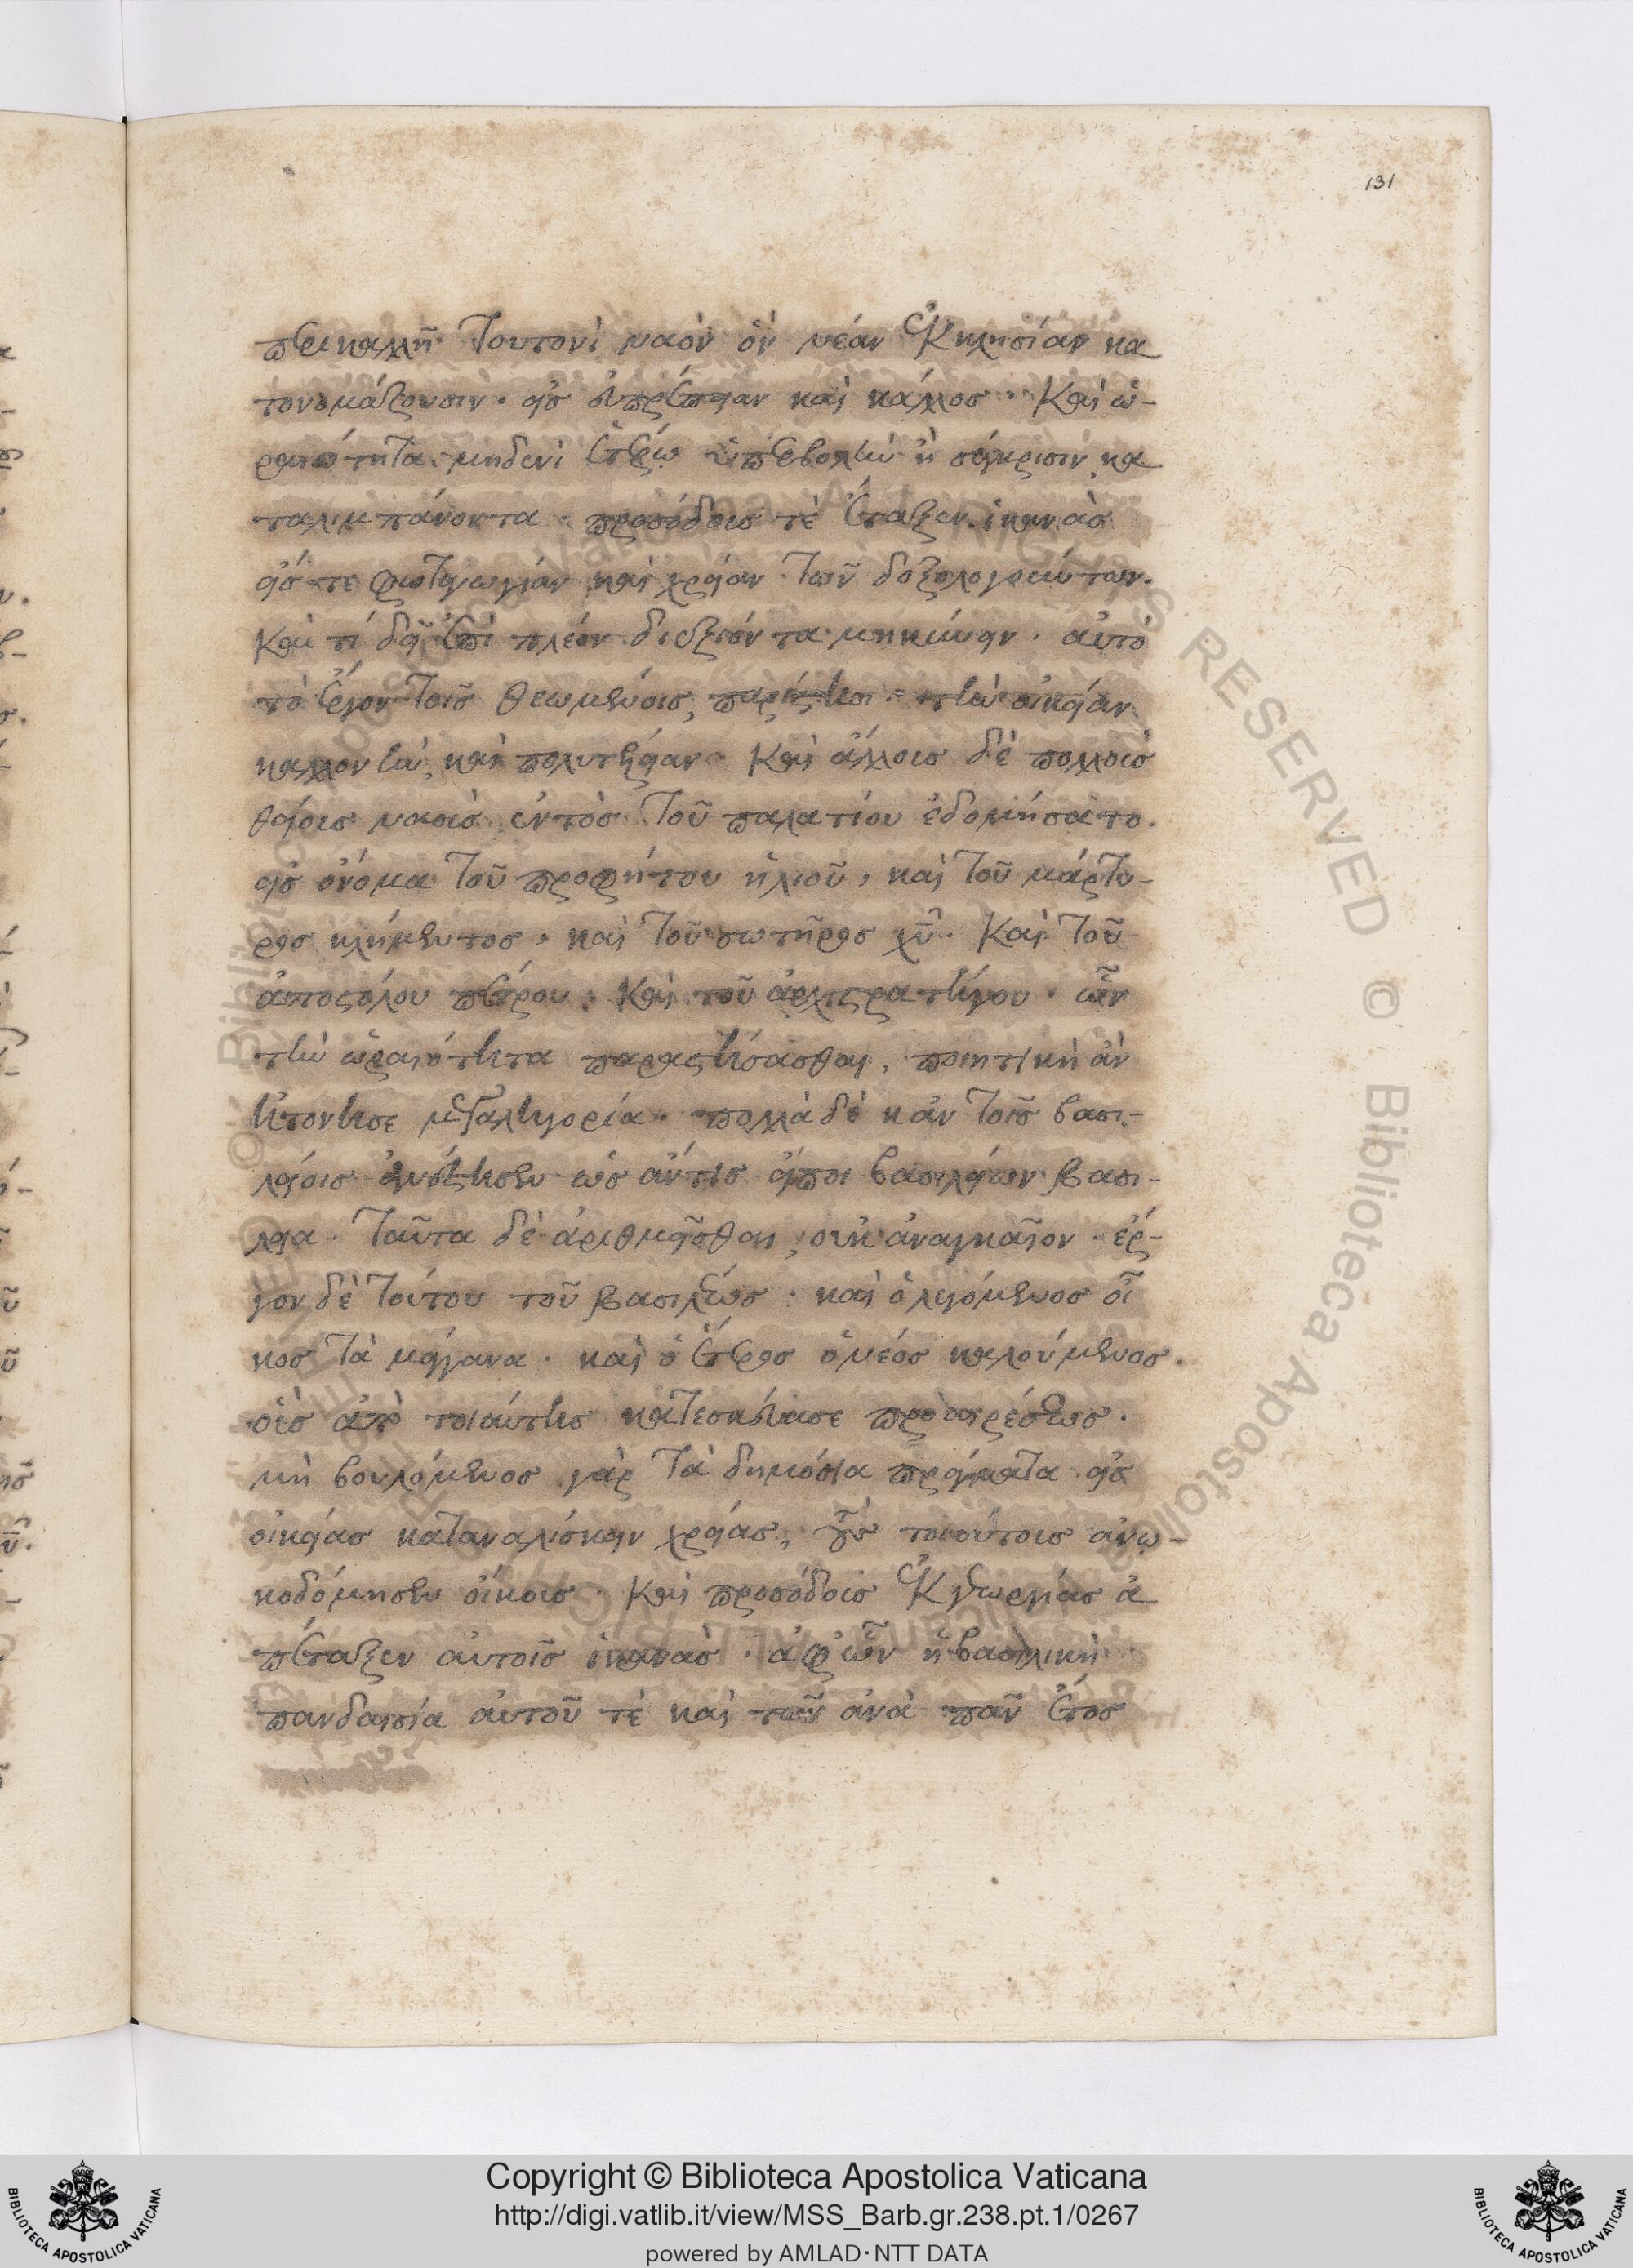 131
περικαλλῆ τουτονὶ ναὸν ὃν νέαν ἐκκλησίαν κα
τονομάζουσιν · εἰς εὐπρέπειαν καὶ κάλλος · καὶ ὡ-
ραιότητα μηδενὶ ἑτέρῳ ὑπερβολὴν ἢ σύγκρισιν κα
ταλιμπάνοντα · προσόδοις τὲ ἔταξεν ἱκανὰς
εἰς τε φωταγωγίαν καὶ χρείαν τῶν δοξολογούντων.
καὶ τί δεῖ ἐπὶ πλέον διεξιόντα μηκύνειν · αὐτὸ
τὸ ἔργον τοῖς θεωμένοις, παρίστησι τὴν οἰκείαν
καλλονὴν, καὶ πολυτέλειαν · καὶ ἄλλοις δὲ πολλοῖς
θείοις ναοῖς ἐντὸς τοῦ παλατίου ἐδομήσατο.
εἰς ὄνομα τοῦ προφήτου ἠλιοῦ, καὶ τοῦ μάρτυ-
ρος κλήμεντος, καὶ τοῦ σωτῆρος χῦ · καὶ τοῦ
ἀποστόλου πέτρου · καὶ τοῦ ἀρχιστρατήγου · ὧν
τὴν ὡραιότητα παραστήσασθαι, ποιητικὴ ἂν
ἠτόνησε μεγαληγορία · πολλὰ δὲ κἀν τοῖς βασι-
λείοις ἀνέστησεν ὡς ἄν τις εἴποι βασιλείων βασί-
λεια · ταῦτα δὲ ἀριθμεῖσθαι, οὐκ ἀναγκαῖον · ἔρ-
γον δὲ τούτου τοῦ βασιλέως · καὶ ὁ λεγόμενος οἶ
κος τὰ μάγγανα · καὶ ὁ ἕτερος ὁ νέος καλούμενος.
οἷς ἀπὸ τοιαύτης κατεσκεύασε προαιρέσεως.
μὴ βουλόμενος γὰρ τὰ δημόσια πράγματα εἰς
οἰκείας καταναλίσκειν χρείας, τοῖς τοιούτοις ἀνῳ-
κοδόμησεν οἴκοις · καὶ προσόδοις ἐκ γεωργίας ἀ
πέταξεν αὐτοῖς ἱκανὰς · ἀφ᾽ ὧν ἡ βασιλικὴ
πανδαισία αὐτοῦ τὲ καὶ τῶν ἀνὰ πᾶν ἔτος
Copyright © Biblioteca Apostolica Vaticana
http://digi.vatlib.it/view/MSS_Barb.gr.238.pt.1/0267
powered by AMLAD·NTT DATA